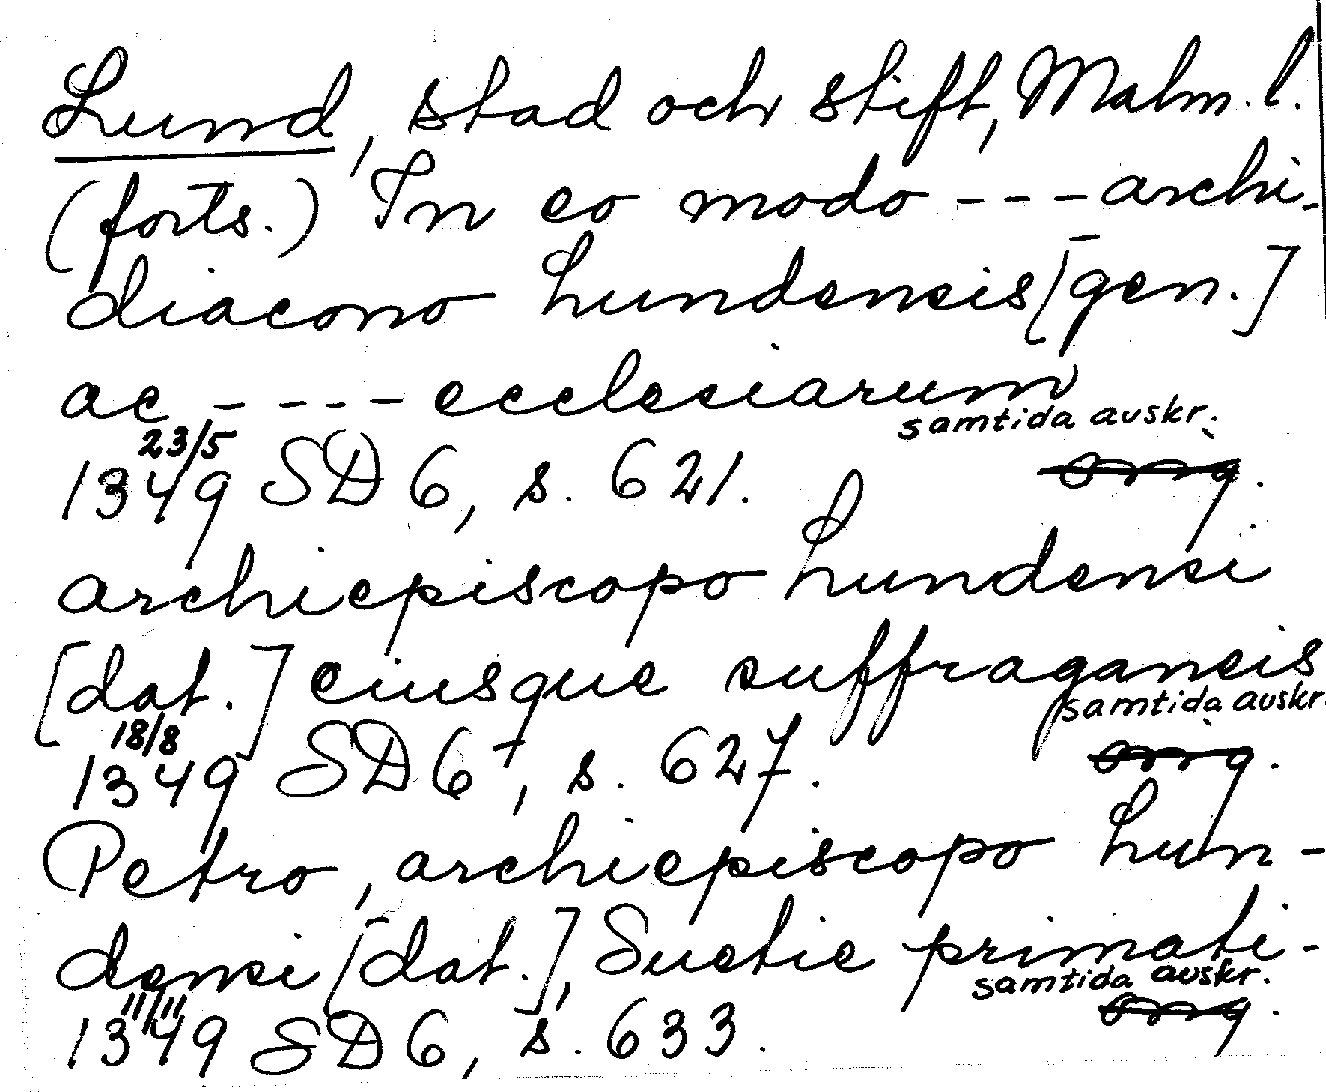 Lund, stad och stift, Malm. l.
(forts.) In eo modo --- archi-
diacono Lundensis [gen.]
ac ---- ecclesiarum
samtida avskr.
23/5
1349 SD 6, s. 621. orig.
archiepiscopo Lundensi
[dat.] eiusque suffraganeis
samtida avskr.
18/8
1349 SD 6, s. 627. orig.
Petro, archiepiscopo Lun-
densi [dat.], Suetie primati-
samtida avskr.
11/11
1349 SD 6, s. 633. orig.